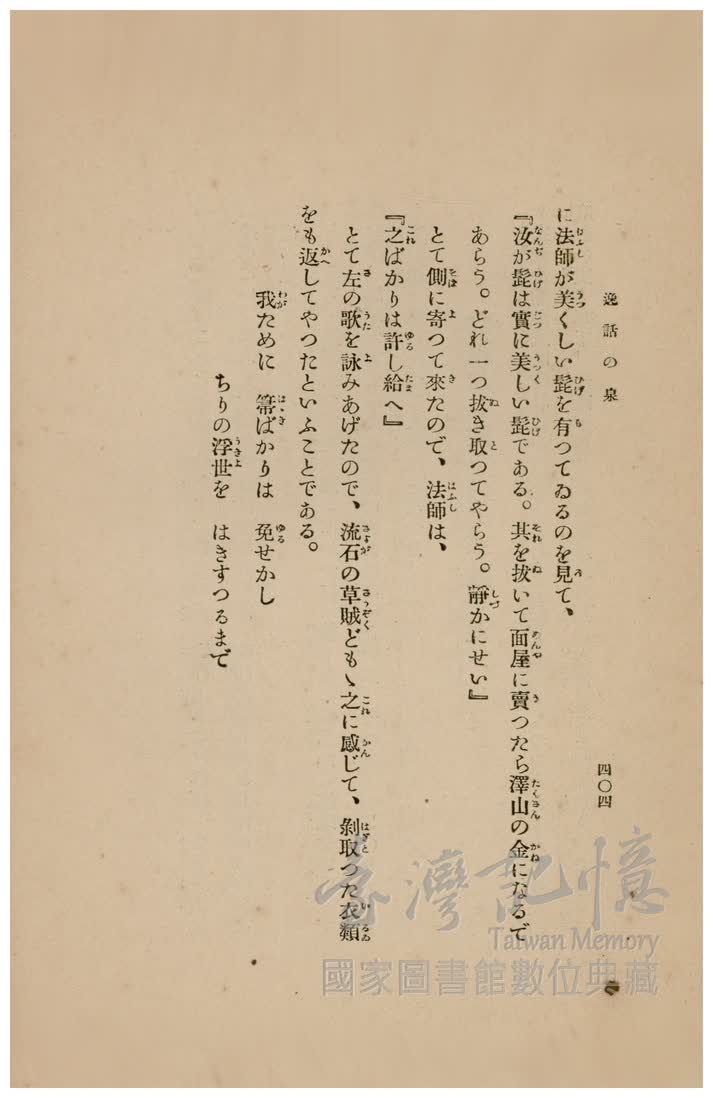 逸話の泉
四〇四
に法師が美くしい髭を有つてゐるのを見て、
『汝が髭は實に美しい髭である。其を拔いて面屋に賣つたら澤山の金になるで
あらう。どれ一つ拔き取つてやらう。靜かにせい』
とて側に寄つて來たので、法師は、
『之ばかりは許し給へ』
とて左の歌を詠みあげたので、流石の草賊どもゝ之に感じて、剝取つた衣類
をも返してやつたといふことである。
我ために　箒ばかりは　免せかし
ちりの浮世を　はきすつるまで
臺灣記憶
Taiwan Memory
國家圖書館數位典藏